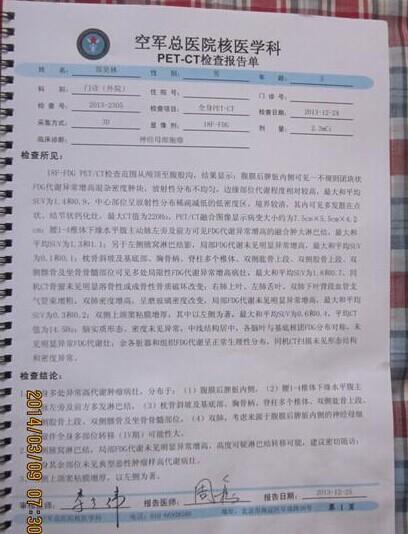 空军总医院核医学科
PET-CT检查报告单
姓 名: 性 别: 男 年 龄: 3
科 别: 门诊(外院) 住院号: 门诊号:
检 查 号: 2013-2305 检查项目: 全身PET-CT 检查日期: 2013-12-24
采集方式: 3D 显 像 剂: 18F-FDG 剂 量: 2.3mCi
临床诊断: 神经母细胞瘤
检查所见:
18F-FDG PET/CT检查范围从颅顶至腹股沟, 结果显示: 腹膜后脾脏内侧可见一不规则团块状
FDG代谢异常增高混杂密度肿块, 放射性分布不均匀, 边缘部位代谢程度相对较高, 最大和平均
SUV为1.4和0.9, 中心部位呈放射性分布稀疏减低的低密度区, 境界较清, 其内可见多发斑在点
状、结节状钙化灶, 最大CT值为220Hu, PET/CT融合图像显示病变大小约为7.5cm×5.5cm×4.2
cm; 腰1-4椎体下缘水平腹主动脉左旁及前方可见FDG代谢异常增高的融合肿大淋巴结, 最大和平
均SUV为1.3和1.1; 另于左侧腋窝淋巴结影, 局部FDG代谢未见明显异常增高, 最大和平均SUV
为0.1和0.1; 枕骨斜坡及基底部、胸骨柄、脊柱多个椎体、双侧肱骨上段、双侧股骨上段、双
侧髂骨及坐骨耻骨部位可见多处局限性FDG代谢异常增高病灶, 最大和平均SUV为1.6和0.7, 同
机CT骨窗未见明显溶骨性或成骨性骨质破坏改变; 右肺上叶、左肺舌叶、双肺下叶背段血管支
气管束增粗, 双肺密度增高, 呈磨玻璃密度改变, 局部FDG代谢未见明显异常增高, 最大和平均
SUV为0.3和0.2; 双侧上颌窦粘膜增厚, 其中以左侧为著, 最大和平均SUV为0.6和0.4, 平均CT
值为14.5Hu; 脑实质形态、密度未见异常, 中线结构居中, 各脑叶与基底核团FDG分布对称, 未
见明显异常FDG代谢灶; 余各脏器和组织FDG代谢呈正常生理性分布, 同机CT扫描未见形态结构
和密度异常。
检查结论:
身多处异常高代谢肿瘤病灶, 分布于: (1) 腹膜后脾脏内侧, (2) 腰1-4椎体下缘水平腹主
脉左旁及前方多发淋巴结, (3) 枕骨斜坡及基底部、胸骨柄、脊柱多个椎体、双侧肱骨上段、
侧股骨上段、双侧髂骨及坐骨耻骨部位, (4) 双肺, 考虑来源于腹膜后脾脏内侧的神经母细
瘤伴全身多部位转移(IV期)可能性大。
侧腋窝淋巴结, 局部代谢未见明显异常增高, 高度可疑淋巴结转移可能, 建议密切随访;
身其余部位未见典型恶性肿瘤样高代谢病灶。
侧上颌窦粘膜增厚, 以左侧为著。
师: 报告医师: 报告日期: 2013-12-25
军总医院核医学科 电话: 010-66928269 地址: 第 1 页
2014/03/09 07:30